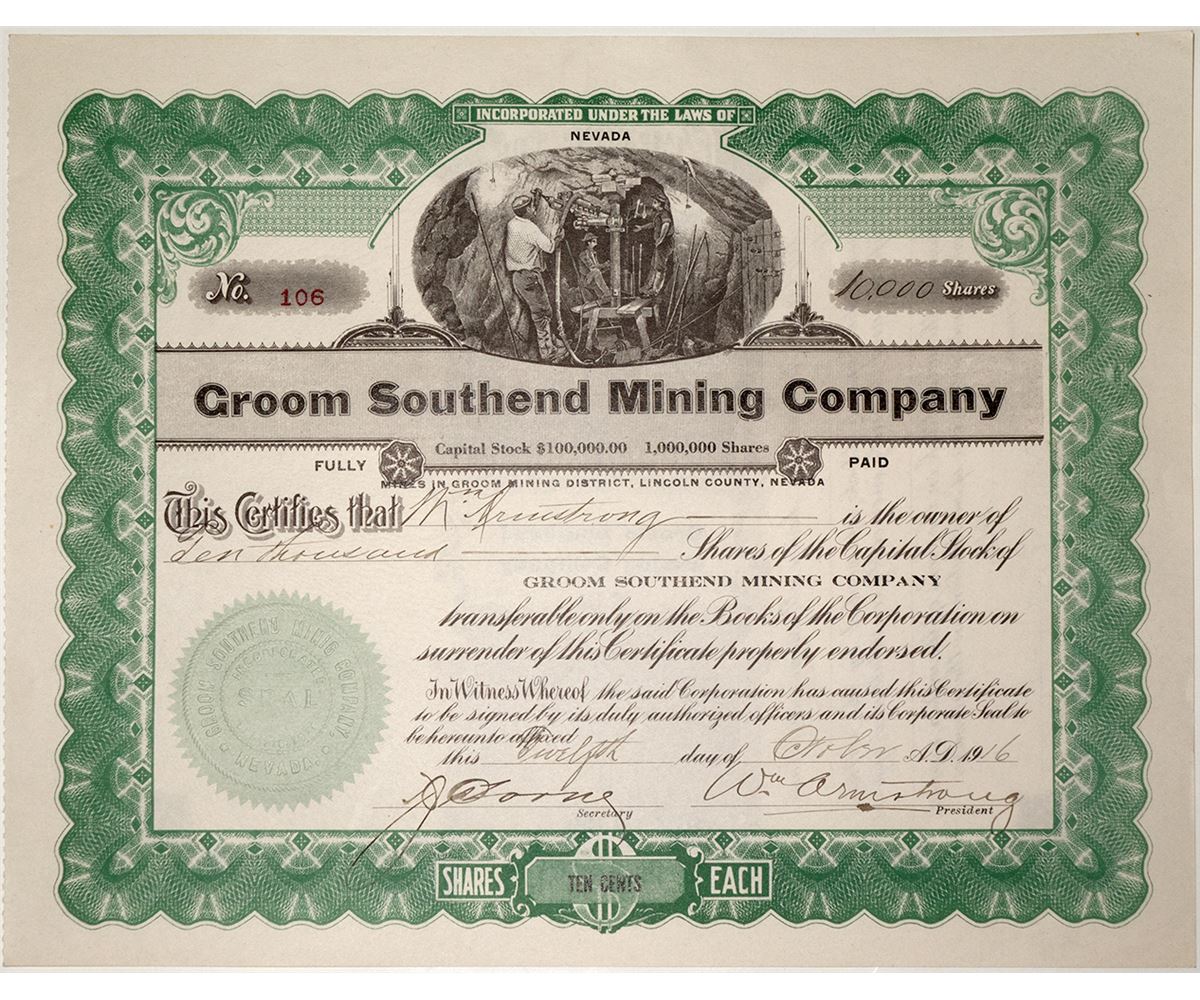 INCORPORATED UNDER THE LAWS OF
NEVADA
No. 106
10,000 Shares
Groom Southend Mining Company
Capital Stock $100,000.00 1,000,000 Shares
FULLY PAID
MINES IN GROOM MINING DISTRICT, LINCOLN COUNTY, NEVADA
This Certifies that Wm Armstrong is the owner of
Ten thousand Shares of the Capital Stock of
GROOM SOUTHEND MINING COMPANY
transferable only on the Books of the Corporation on
surrender of this Certificate properly endorsed.
In Witness Whereof the said Corporation has caused this Certificate
to be signed by its duly authorized officers and its Corporate Seal to
be hereunto affixed
this Twelfth day of October A.D. 1916
Wm Armstrong
Secretary
President
GROOM SOUTHEND MINING COMPANY,
INCORPORATED
NEVADA.
SHARES TEN CENTS EACH